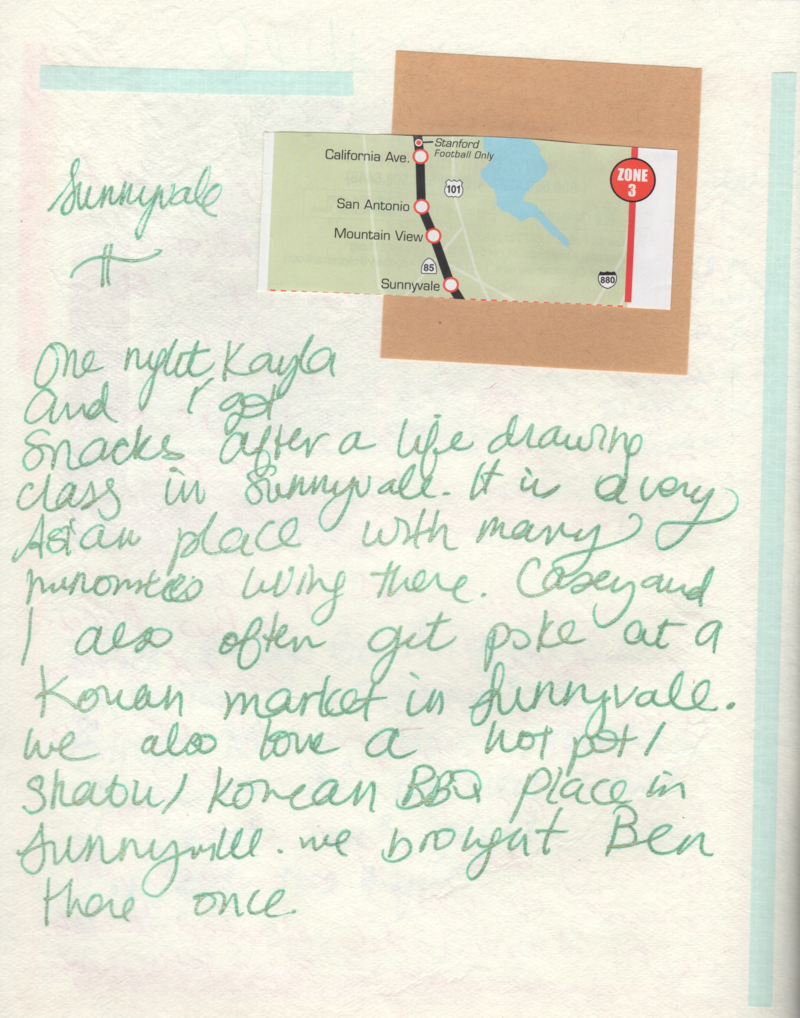 Stanford
Football Only
California Ave.
101
ZONE
3
San Antonio
Mountain View
85
880
Sunnyvale
Sunnyvale
One night Kayla
and I got
snacks after a life drawing
class in Sunnyvale. It is a very
Asian place with many
living there. Casey and
I also often get poke at a
Korean market in Sunnyvale.
We also love a hot pot/
Shabu/Korean BBQ place in
Sunnyville. we brought Ben
there once.